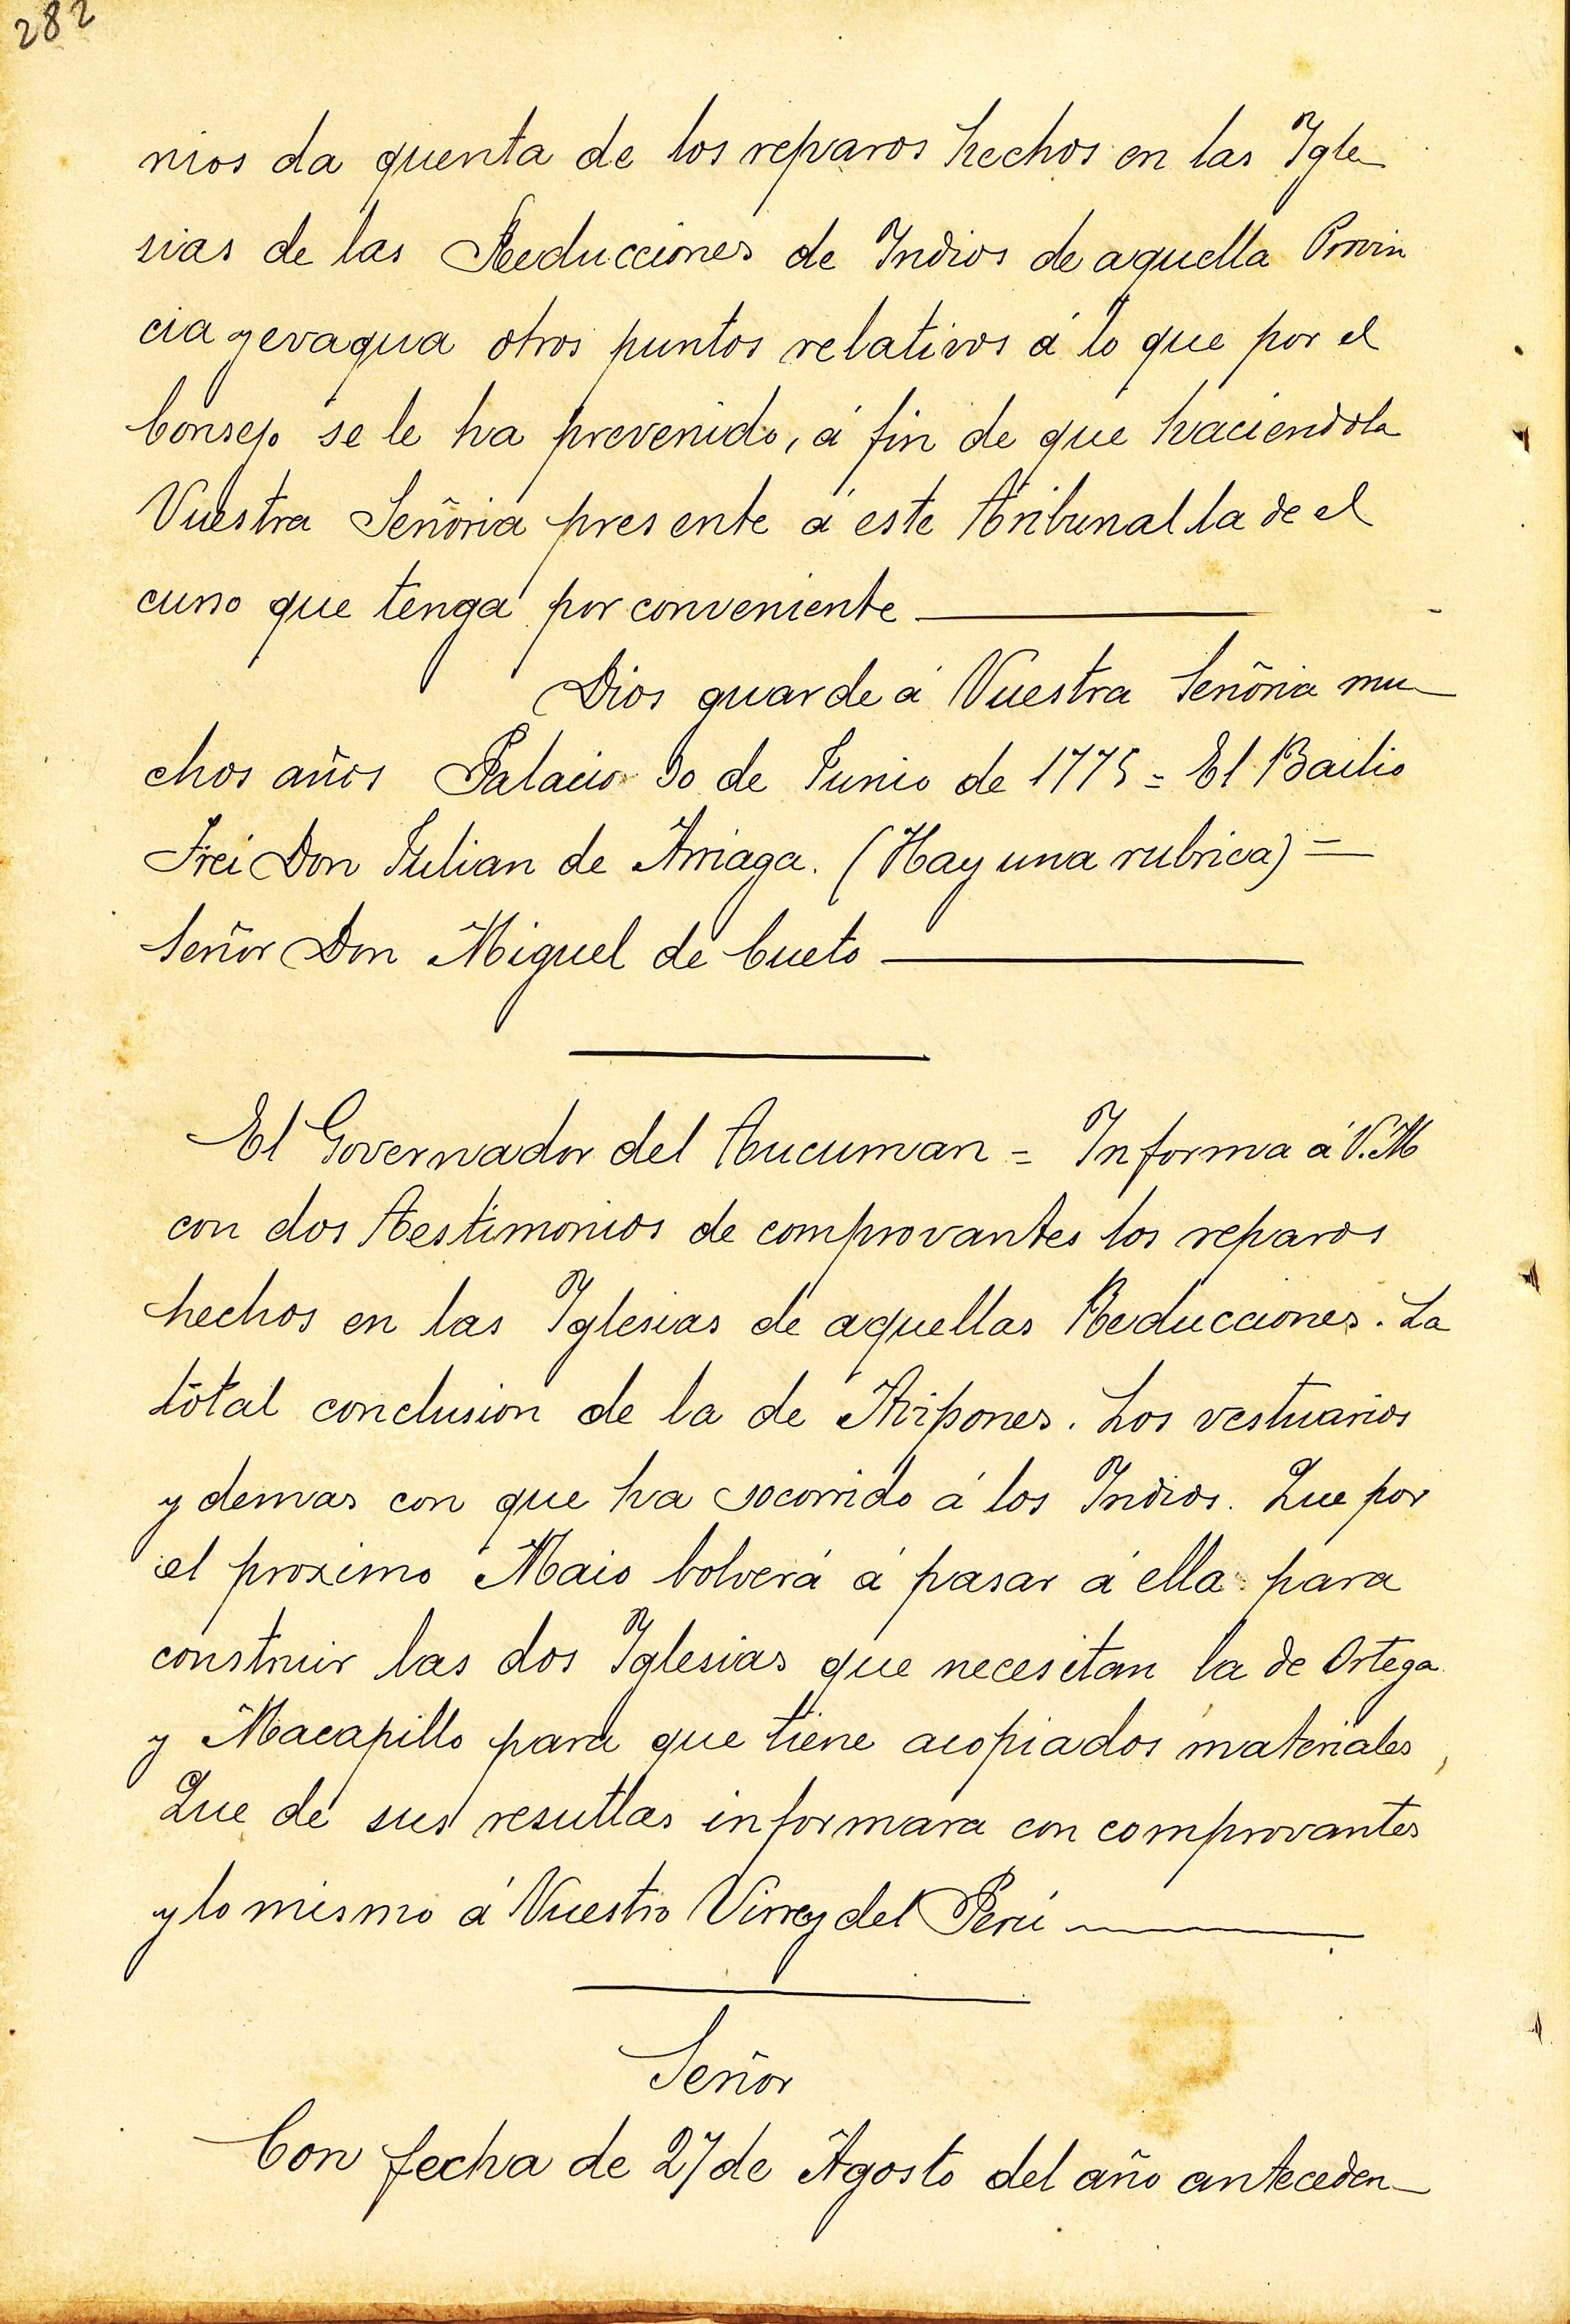 282
nios da quenta de los reparos hechos en las Igle-
sias de las Reducciones de Indios de aquella Provin
cia y evaqua otros puntos relativos á lo que por el
Consejo se le ha prevenido, á fin de que haciendola
Vuestra Señoria presente á este Tribunal la de el
curso que tenga por conveniente
Dios guarde á Vuestra Señoria mu-
chos años Palacio 30 de Junio de 1775 = El Bailio
Frei Don Julian de Arriaga. (Hay una rubrica) =
Señor Don Miguel de Cueto
El Governador del Tucuman = Informa á V.M
con dos Testimonios de comprovantes los reparos
hechos en las Iglesias de aquellas Reducciones. La
total conclusion de la de Avipones. Los vestuarios
y demas con que ha socorrido á los Indios. Que por
el proximo Maio bolverá á pasar á ella para
construir las dos Iglesias que necesitan la de Ortega
y Macapillo para que tiene acopiados materiales,
Que de sus resultas informara con comprovantes
y lo mismo á Vuestro Virrey del Perú
Señor
Con fecha de 27 de Agosto del año anteceden-